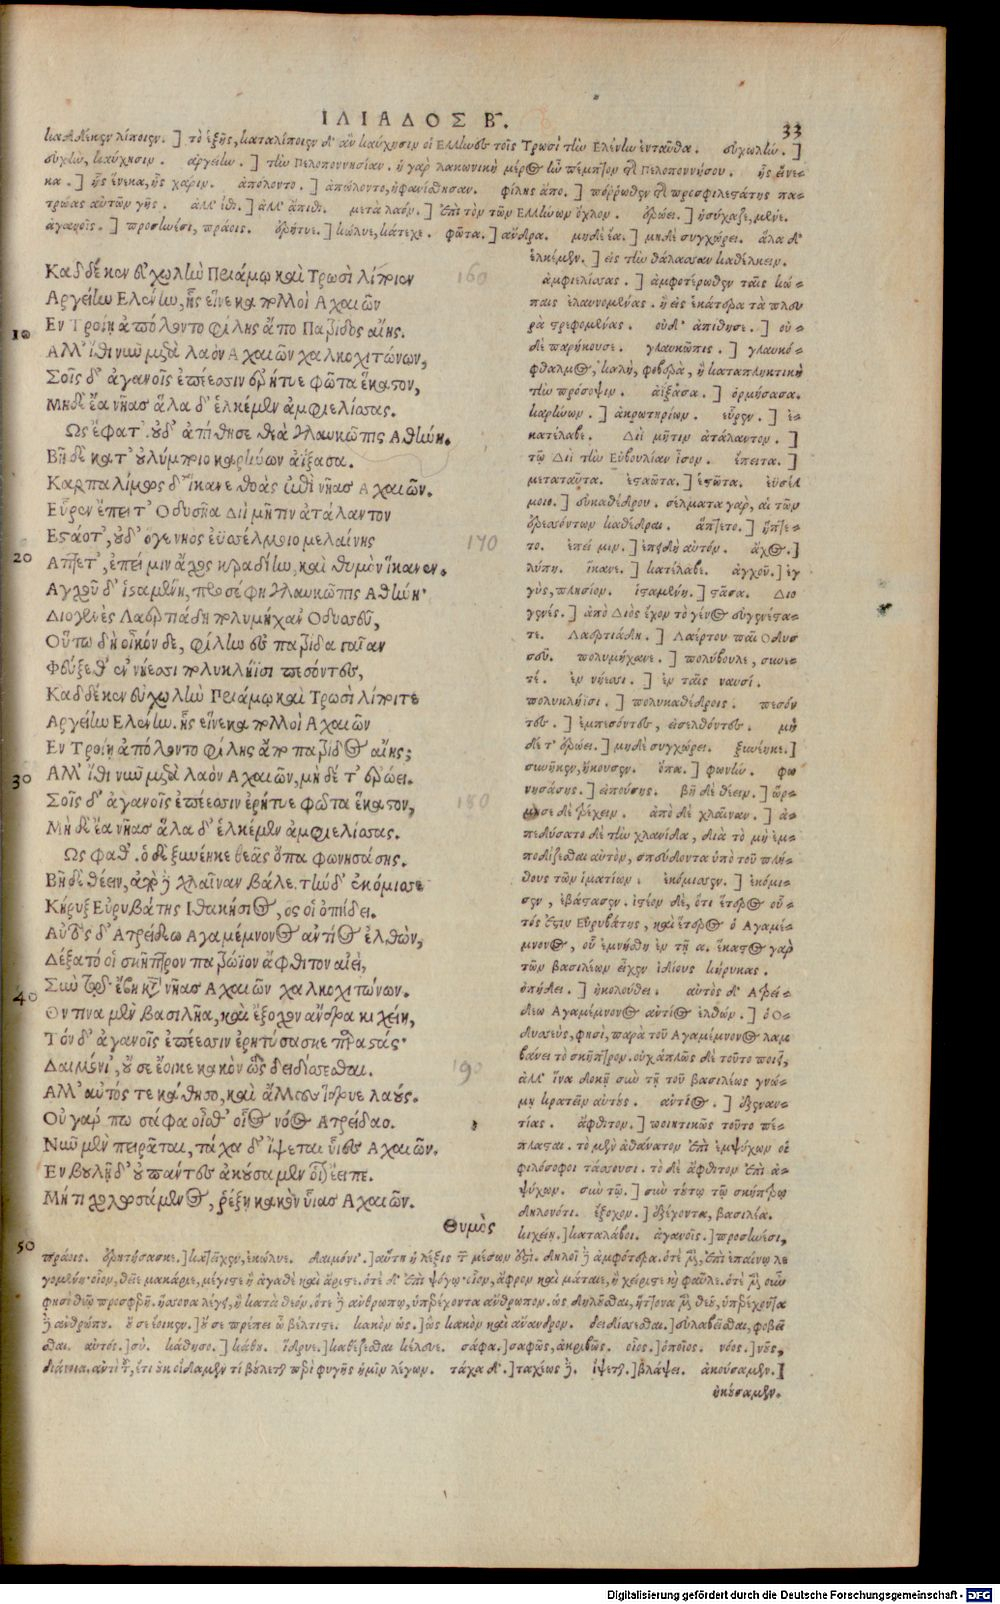 ΙΛΙΑΔΟΣ Β.
33
καδδέ κεν λίποιεν. ] τὸ ἑξῆς, καταλίποιεν δ' ἂν καύχησιν οἱ Ελληνες τοῖς Τρωσὶ τὴν Ελένην ἐνταῦθα. εὐχωλήν. ]
εὐχὴν, καύχησιν. αργείην. ] τὴν Πελοποννησίαν. ἡ γὰρ λακωνικὴ μέρος ἦν πέμπτον τῆς Πελοποννήσου. ἧς εἵνε-
κα. ] ἧς ἕνεκα, ἧς χάριν. ἀπόλοντο. ] ἀπώλοντο, ἠφανίσθησαν. φίλης ἄπο. ] πόῤῥωθεν τῆς προσφιλεστάτης πα-
τρώας αὐτῶν γῆς. ἀλλ' ἴθι. ] ἀλλ' ἄπιθι. μετὰ λαόν. ] ἐπὶ τὸν τῶν Ελλήνων ὄχλον. ἐρώει. ] ἡσύχαζε, μένε.
ἀγανοῖς. ] προσηνέσι, πράοις. ἐρήτυε. ] κώλυε, κάτεχε. φῶτα. ] ἄνδρα. μηδὲ ἔα. ] μηδὲ συγχώρει. ἅλα δ'
Καδδέ κεν εὐχωλὴν Πριάμῳ καὶ Τρωσὶ λίποιεν 160
Αργείην Ελένην, ἧς εἵνεκα πολλοὶ Αχαιῶν
10 Εν Τροίῃ ἀπόλοντο φίλης ἄπο Πατρίδος αἴης.
Αλλ' ἴθι νῦν μετὰ λαὸν Αχαιῶν χαλκοχιτώνων,
Σοῖς δ' ἀγανοῖς ἐπέεσσιν ἐρήτυε φῶτα ἕκαστον,
Μηδὲ ἔα νῆας ἅλα δ' ἑλκέμεν ἀμφιελίσσας.
Ως ἔφατ'. οὐδ' ἀπίθησε θεὰ γλαυκῶπις Αθήνη.
Βῆ δὲ κατ' οὐλύμποιο καρήνων ἀΐξασα.
Καρπαλίμως δ' ἵκανε θοὰς ἐπὶ νῆας Αχαιῶν.
Εὗρεν ἔπειτ' Οδυσῆα Διὶ μῆτιν ἀτάλαντον
Εσταότ', οὐδ' ὅγε νηὸς ἐϋσέλμοιο μελαίνης 170
20 Απτετ', ἐπεί μιν ἄχος κραδίην, καὶ θυμὸν ἵκανεν.
Αγχοῦ δ' ἱσταμένη, προσέφη γλαυκῶπις Αθήνη·
Διογενὲς Λαερτιάδη πολυμήχαν' Οδυσσεῦ,
Οὕτω δὴ οἶκόνδε, φίλην ἐς πατρίδα γαῖαν
Φεύξεσθ' ἐν νήεσσι πολυκλήϊσι πεσόντες,
Καδδέ κεν εὐχωλὴν Πριάμῳ καὶ Τρωσὶ λίποιτε
Αργείην Ελένην. ἧς εἵνεκα πολλοὶ Αχαιῶν
Εν Τροίῃ ἀπόλοντο φίλης ἄπο πατρίδος αἴης;
30 Αλλ' ἴθι νῦν μετὰ λαὸν Αχαιῶν, μηδέ τ' ἐρώει.
Σοῖς δ' ἀγανοῖς ἐπέεσσιν ἐρήτυε φῶτα ἕκαστον, 180
Μηδὲ ἔα νῆας ἅλα δ' ἑλκέμεν ἀμφιελίσσας.
Ως φάθ'. ὁ δὲ ξυνέηκε θεᾶς ὄπα φωνησάσης.
Βῆ δὲ θέειν, ἀπὸ δὲ χλαῖναν βάλε. τὴν δ' ἐκόμισσε
Κήρυξ Εὐρυβάτης Ιθακήσιος, ος οἱ ὀπήδει.
Αὐτὸς δ' Ατρείδεω Αγαμέμνονος ἀντίος ἐλθὼν,
Δέξατό οἱ σκῆπτρον πατρώϊον ἄφθιτον αἰεί,
40 Σὺν τῷδ' ἔβη κατὰ νῆας Αχαιῶν χαλκοχιτώνων.
Ον τινα μὲν βασιλῆα, καὶ ἔξοχον ἄνδρα κιχείη,
Τόν δ' ἀγανοῖς ἐπέεσσιν ἐρητύσασκε παραστάς·
Δαιμόνι', οὔ σε ἔοικε κακὸν ὣς δειδίσσεσθαι. 190
Αλλ' αὐτός τε κάθησο, καὶ ἄλλους ἵδρυε λαούς.
Οὐ γάρ πω σάφα οἶσθ' οἷος νόος Ατρείδαο.
Νῦν μὲν πειρᾶται, τάχα δ' ἴψεται υἷας Αχαιῶν.
Εν βουλῇ δ' οὐ πάντες ἀκούσαμεν οἷον ἔειπε.
Μή τι χολωσάμενος, ῥέξῃ κακὸν υἷας Αχαιῶν.
Θυμὸς
ἑλκέμεν. ] εἰς τὴν θάλασσαν καθέλκειν.
ἀμφιελίσσας. ] ἀμφοτέρωθεν ταῖς κώ-
παις ἐλαυνομένας. ἢ εἰς ἑκάτερα τὰ πλευ
ρὰ στρεφομένας. οὐδ' ἀπίθησε. ] οὐ-
δὲ παρήκουσε. γλαυκῶπις. ] γλαυκό-
φθαλμος, καλὴ, φοβερὰ, ἢ καταπληκτικὴ
τὴν πρόσοψιν. ἀΐξασα. ] ὁρμήσασα.
καρήνων. ] ἀκρωτηρίων. εὗρεν. ] ἐ-
κατέλαβε. Διὶ μῆτιν ἀτάλαντον. ]
τῷ Διὶ τὴν Εὐβουλίαν ἶσον. ἔπειτα. ]
μεταταῦτα. ἑσταῶτα. ] ἑστῶτα. εὐσέλ
μοιο. ] εὐκαθέδρου. σέλματα γὰρ, αἱ τῶν
ἐρεσσόντων καθέδραι. ἅπτετο. ] ἥπτε-
το. ἐπεί μιν. ] ἐπειδὴ αὐτόν. ἄχος. ]
λύπη. ἵκανε. ] κατέλαβε. ἀγχοῦ. ] ἐγ
γὺς, πλησίον. ἱσταμένη. ] στᾶσα. Διο
γενές. ] ἀπὸ Διὸς ἔχον τὸ γένος εὐγενέστα-
τε. Λαερτιάδη. ] Λαέρτου παῖ Οδυσ
σεῦ. πολυμήχανε. ] πολύβουλε, συνε-
τέ. ἐν νήεσσι. ] ἐν ταῖς ναυσί.
πολυκλήϊσι. ] πολυκαθέδροις. πεσόν
τες. ] ἐμπεσόντες, εἰσελθόντες. μη
δέ τ' ἐρώει. ] μηδὲ συγχώρει. ξυνέηκε. ]
συνῆκεν, ἤκουσεν. ὄπα. ] φωνήν. φω
νησάσης. ] εἰπούσης. βῆ δὲ θέειν. ] ὥρ-
μησε δὲ τρέχειν. ἀπὸ δὲ χλαῖναν. ] ἀ-
πεδύσατο δὲ τὴν χλανίδα, διὰ τὸ μὴ ἐμ-
ποδίζεσθαι αὐτὸν, σπεύδοντα ὑπὸ τοῦ πλή-
θους τῶν ἱματίων. ἐκόμισσεν. ] ἐκόμι-
σεν, ἐβάστασεν. ἰστέον δὲ, ὅτι ἕτερος οὗ-
τός ἐστιν Ευρυβάτης, καὶ ἕτερος ὁ Αγαμέ-
μνονος, οὗ ἐμνήσθη ἐν τῇ α. ἕκαστος γὰρ
τῶν βασιλέων εἶχεν ἰδίους κήρυκας.
ὀπήδει. ] ἠκολούθει. αὐτὸς δ' Ατρεί-
δεω Αγαμέμνονος ἀντίος ἐλθών. ] ὁ Ο-
δυσσεὺς, φησὶ, παρὰ τοῦ Αγαμέμνονος λαμ
βάνει τὸ σκῆπτρον. οὐχ ἁπλῶς δὲ τοῦτο ποιεῖ,
ἀλλ' ἵνα δοκῇ σὺν τῇ τοῦ βασιλέως γνώ-
μῃ κρατεῖν αὐτούς. ἀντίος. ] ἐξεναν-
τίας. ἄφθιτον. ] ποιητικῶς τοῦτο πέ-
πλασται. τὸ μὲν ἀθάνατον ἐπὶ ἐμψύχων οἱ
φιλόσοφοι τάσσουσι. τὸ δὲ ἄφθιτον ἐπὶ ἀ-
ψύχων. σὺν τῷ. ] σὺν τούτῳ τῷ σκήπτρῳ
δηλονότι. ἔξοχον. ] ἐξέχοντα, βασιλέα.
κιχείη. ] καταλάβοι. ἀγανοῖς. ] προσηνέσι,
50 πράοις. ἐρητύσασκε. ] κατεῖχεν, ἐκώλυε. δαιμόνι'. ] αὕτη ἡ λέξις τῶν μέσων ἐστί. δηλοῖ δὲ ἀμφότερα. ὁτὲ μὲν, ἐπὶ ἐπαίνῳ λε
γομένη. οἷον, θεῖε μακάριε, μέγιστε ἢ ἀγαθὲ καὶ ἄριστε. ὁτὲ δ' ἐπὶ ψόγῳ. οἷον, ἄφρον καὶ μάταιε, ἢ χείριστε καὶ φαῦλε. ὁτὲ μὲν οὖν
φησὶ θεῷ προσφερῆ. ἥσσονα λέγει, ἢ κατὰ θεόν. ὁτὲ δὲ ἀνθρώπῳ, ὑπερέχοντα ἄνθρωπον. ὡς δηλοῦσθαι, ἥττονα μὲν θεοῦ, ὑπερέχοντα
δὲ ἀνθρώπου. οὔ σε ἔοικεν. ] οὔ σε πρέπει ὦ βέλτιστε. κακὸν ὡς. ] ὡς κακὸν καὶ ἄνανδρον. δειδίσσεσθαι. ] εὐλαβεῖσθαι, φοβεῖ
σθαι. αὐτός. ] σύ. κάθησο. ] κάθου. ἵδρυε. ] καθέζεσθαι κέλευε. σάφα. ] σαφῶς, ἀκριβῶς. οἷος. ] ὁποῖος. νόος. ] νοῦς,
διάνοια. ἀντὶ τοῦ, ἔτι οὐκ οἴδαμεν τί βούλεται περὶ φυγῆς ἡμῖν λέγων. τάχα δ'. ] ταχέως δέ. ἴψεται. ] βλάψει. ἀκούσαμεν. ]
ἠκούσαμεν.
Digitalisierung gefördert durch die Deutsche Forschungsgemeinschaft - DFG